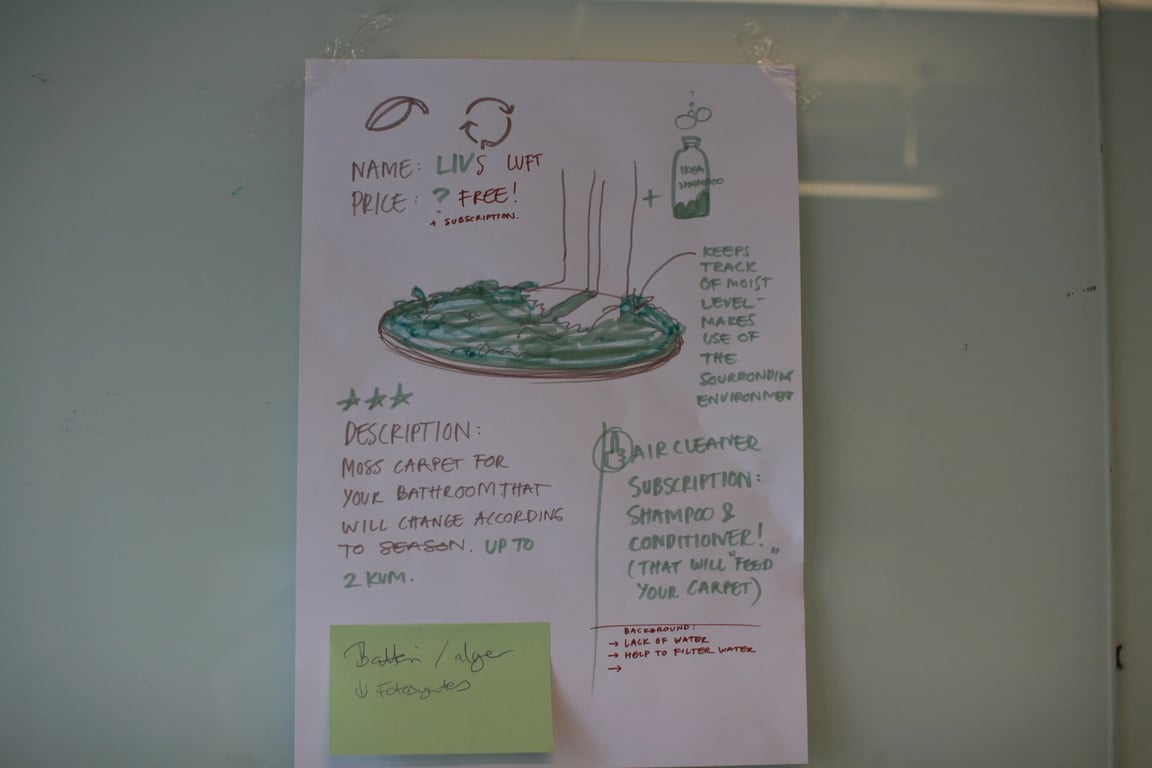 NAME: LIVS LUFT
PRICE: ? FREE!
+ SUBSCRIPTION.
+
IKEA
SHAMPOO
KEEPS
TRACK
OF MOIST
LEVEL-
MAKES
USE OF
THE
SOURRONDING
ENVIRONMENT
DESCRIPTION:
MOSS CARPET FOR
YOUR BATHROOM, THAT
WILL CHANGE ACCORDING
TO SEASON. UP TO
2 KVM.
AIR CLEANER
SUBSCRIPTION:
SHAMPOO &
CONDITIONER!
(THAT WILL "FEED"
YOUR CARPET)
BACKGROUND:
→ LACK OF WATER
→ HELP TO FILTER WATER
→
/ alger
↓ Fotosyntes